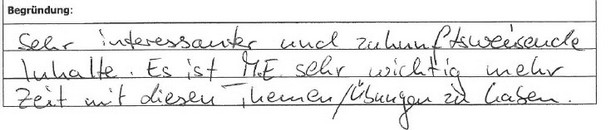 Begründung:
Sehr interessanter und zukunftsweisende
Inhalte. Es ist M.E sehr wichtig mehr
Zeit mit diesen Themen/Übungen zu haben.